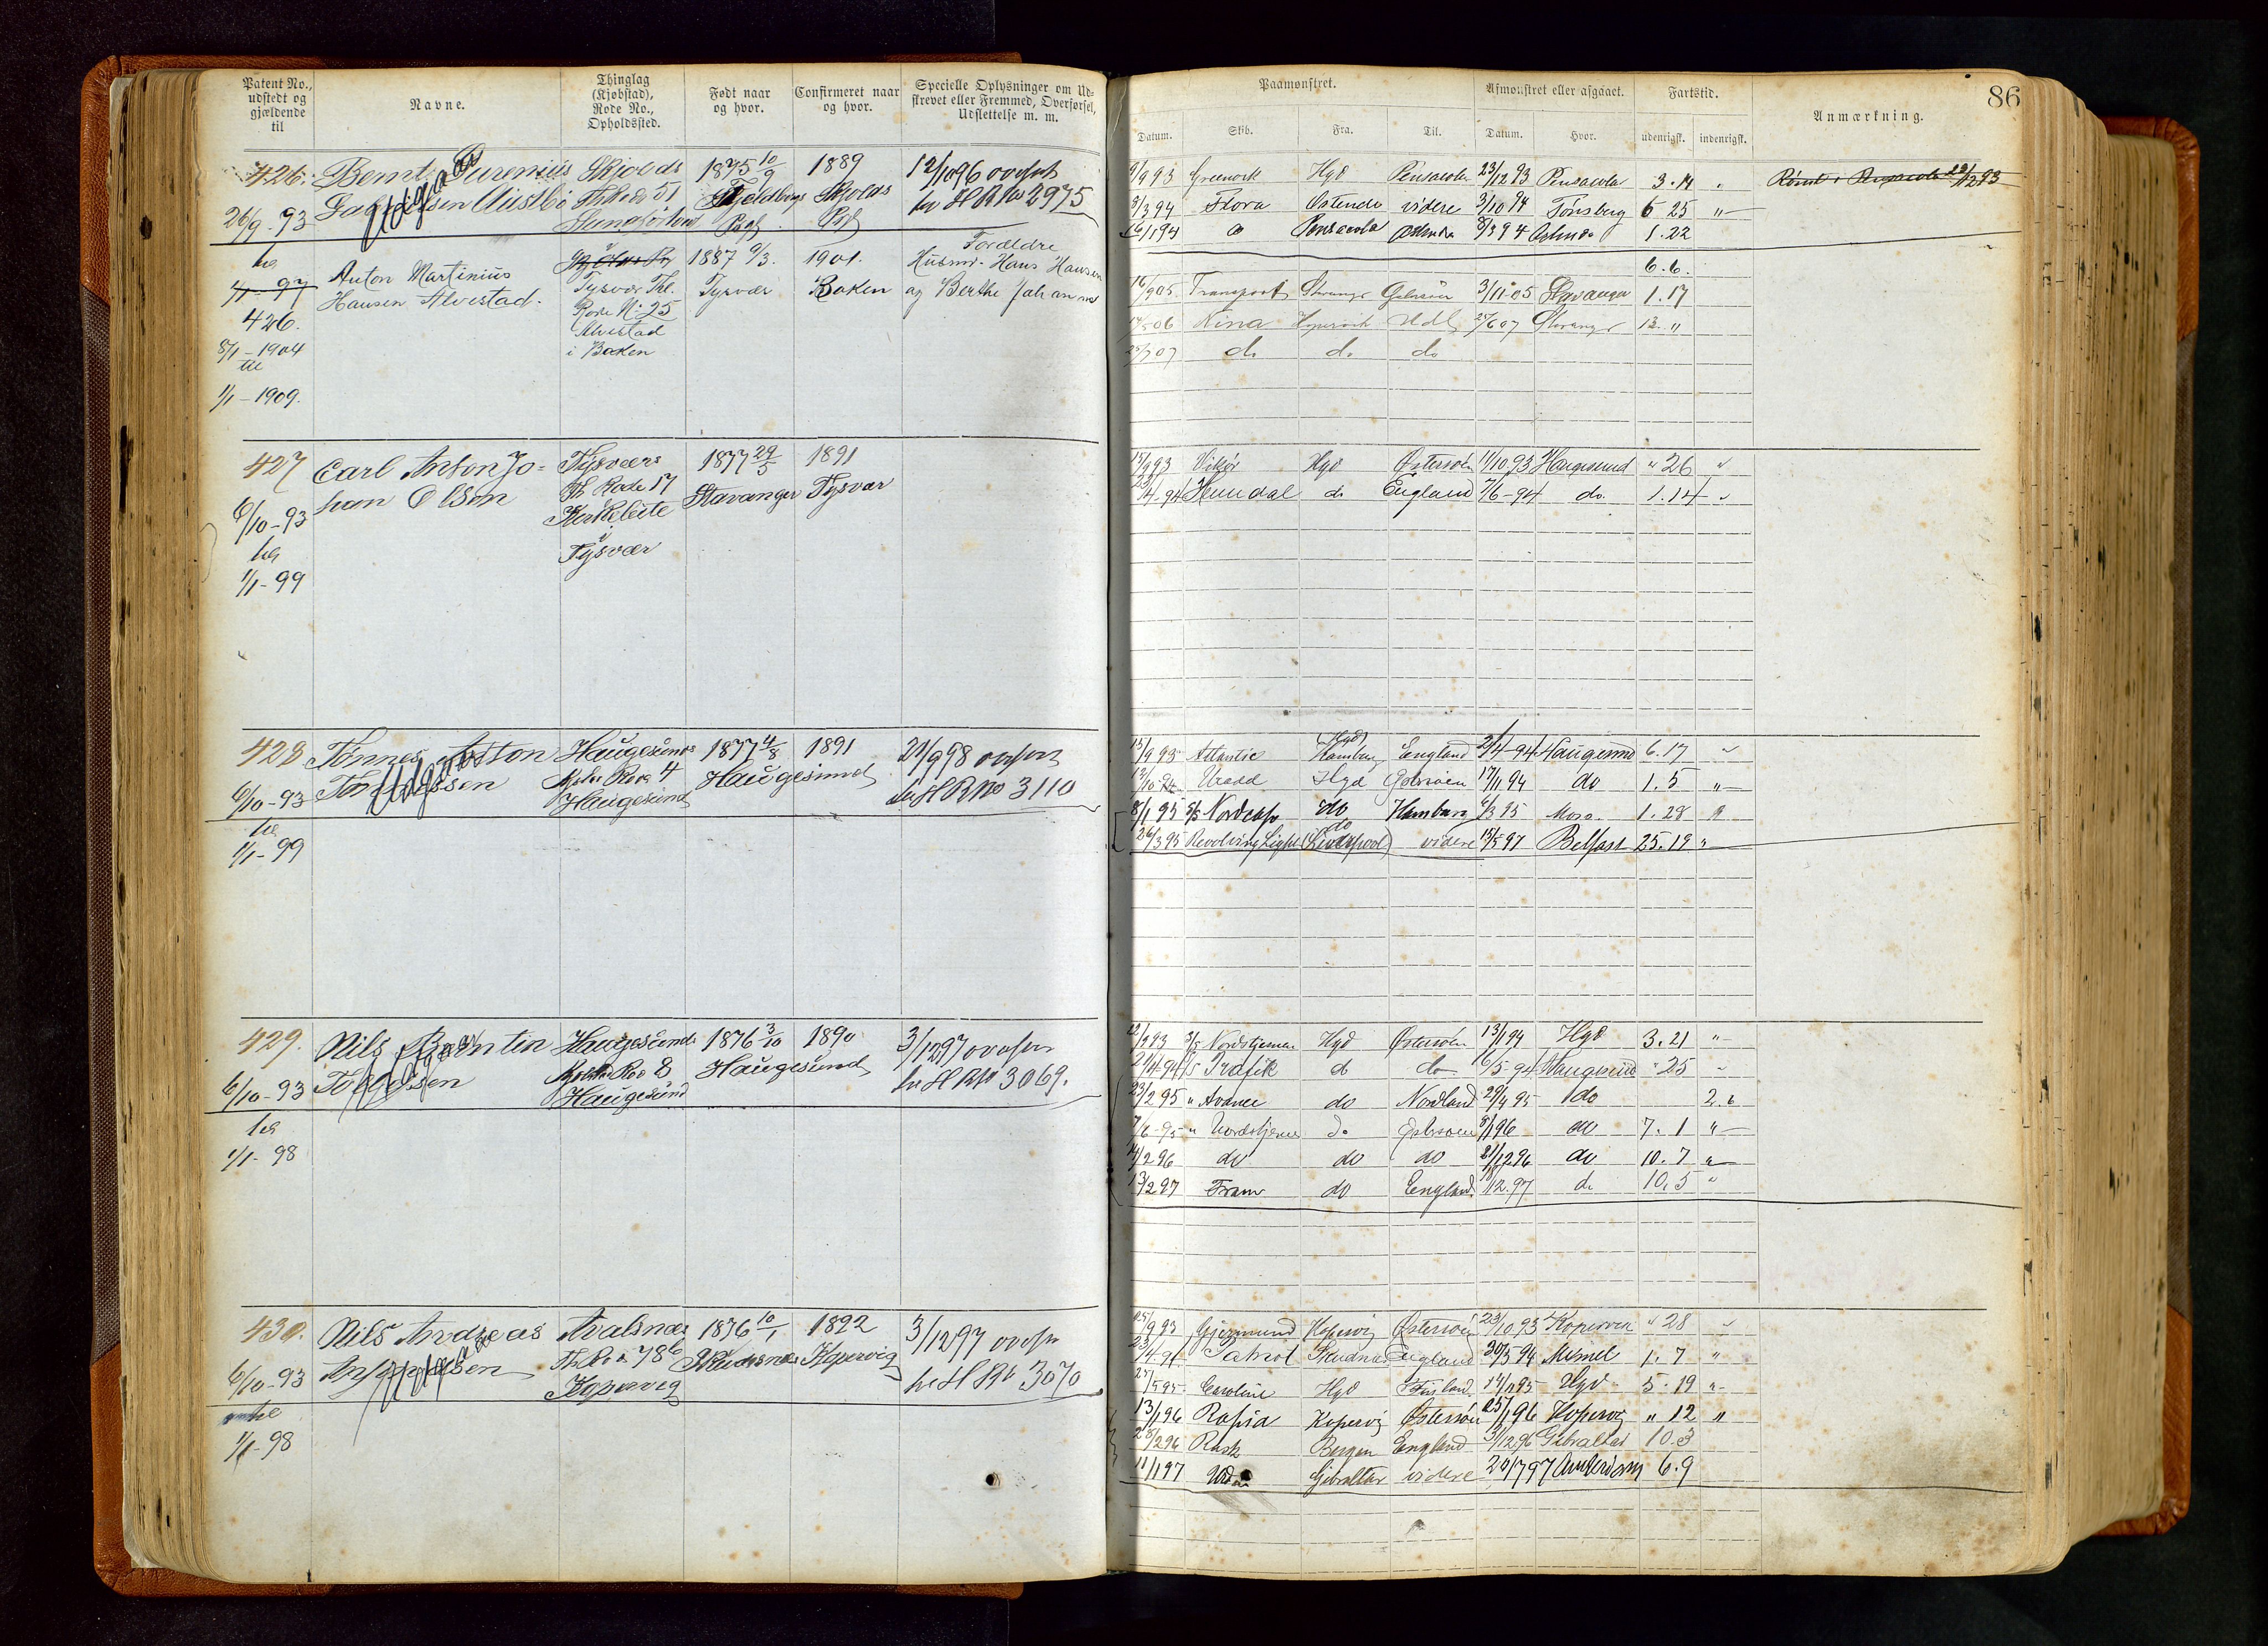 Patent No., udstedt og gjældende til
Navne.
Thinglag (Kjøbstad), Rode No., Opholdssted.
Født naar og hvor.
Confirmeret naar og hvor.
Specielle Oplysninger om Udskrevet eller Fremmed, Overførsel, Udslettelse m. m.
Paamønstret.
Afmønstret eller afgaaet.
Fartstid.
Anmærkning.
86
Datum. Skib. Fra. Til. Datum. Hvor. udenrigsk. indenrigsk.
426. Bernt 1875 10/9 1889 12/10 96 overført
26/9-93 Austbø Th Rode 51 Skjolds til HR No 2975
Pgf Pgf
til
1/1-97
Anton Martinius 1887 9/3. 1901. Forældre
Hansen Alvestad. Tysvær Thl. Tysvær Boken Husm. Hans Hansen
426. Rode No: 25 og Berthe Johanne
8/1-1904 Alvestad
til i Boken
1/1-1909.
9/9 93 Hgd Pensacola 23/12 93 Pensacola 3.14 "
8/3 94 Flora Ostende videre 3/10 94 Tønsberg 6 25 "
16/1 94 do Pensacola Ostende 8/3 94 Ostende 1.22
6.6.
16/9 05 Transport Stavanger Østersøen 3/11-05 Stavanger 1.17
Nina Udl 27/6 07 Stavanger 13 "
25/7 07 do do do
427 Carl Anton Jo= Tysvær 1877 29/5 1891
6/10-93 han Olsen Th Rode 17 Stavanger Tysvær
til Kirkeleite
1/1-99 i Tysvær
Hgd Østersøen 11/10 93 Haugesund " 26 "
do England 7/6-94 do. 1.14 "
428 Tønnes Anton Haugesunds 1877 4/8 1891 21/9 98 overført
6/10-93 Rode 4 Haugesund til HR No 3110
til Haugesund
1/1-99
15/9 93 Atlantic Hamburg (Hgd) England 2/4-94 Haugesund 6.17 "
Hgd Østersøen 17/11 94 do 1.5 "
8/1 95 S/S Nordcap do Hamburg 6/3 95 1.28
26/3 95 Revolving Light (Liverpool) do videre 15/5 97 Belfast 25.19 "
429. Nils Berntin Haugesunds 1876 3/10 1890 3/12 97 overført
6/10-93 Rode 8 Haugesund til HR No 3069.
til Haugesund
1/1-98
S/S Nordstjernen Hgd Østersøen 13/1 94 Hgd 3.21 "
Trafik do do 16/5-94 Haugesund " 25 "
23/2 95 " Avance do Nordland 29/4 95 do 2.6
7/6-95 " Nordstjernen do Østersøen 8/1 96 do 7.1 "
14/2 96 do do do 21/12 96 do 10.7 "
13/2 97 Fram do England 18/12.97 do 10.5 "
430. Nils Andreas Avalsnæs 1876 10/1 1892 3/12 97 overført
6/10-93 Th Rode 78b Skudesnæs Kopervig til HR No 3070
til Kopervig
1/1-98
25/9 93 Gjermund Kopervig Østersøen 23/10 93 Kopervig " 28 "
Patriot Skudnæs England 30/5 94 Memel 1.7 "
25/5 95 Caroline Hgd Finland 14/11 95 Hgd 5.19 "
13/1 96 Rapid Kopervig Østersøen 25/1 96 Kopervig " 12 "
28/2 96 Rask Bergen England 31/12 96 Gibraltar 10.3
11/1 97 Gibraltar videre 20/7 97 Amsterdam 6.9